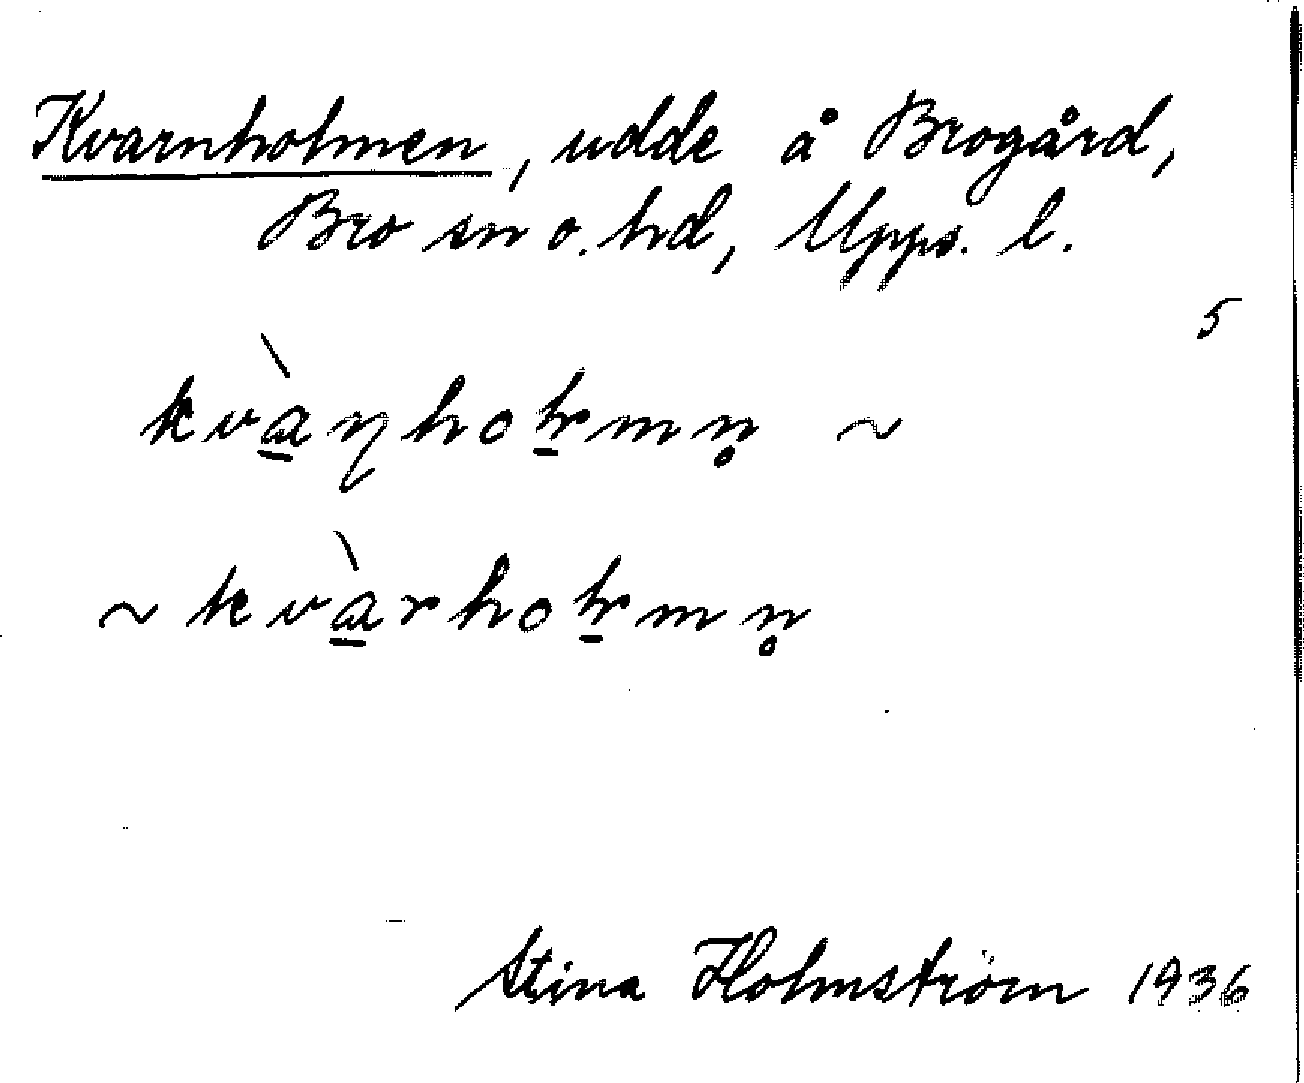 Kvarnholmen, udde å Brogård,
Bro sn o. hd, Upps. l.
5
~
~
Stina Holmström 1936